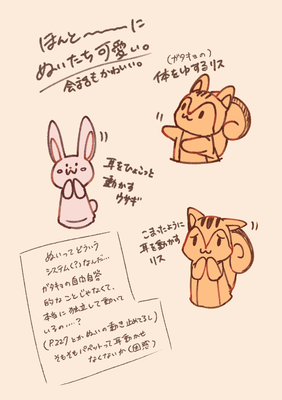 ほんと〜〜〜に
ぬいたち可愛い。
会話もかわいい。
(ガタキョの)
体をゆするリス
耳をひょこっと
動かす
ウサギ
こまったように
耳を動かす
リス
ぬいってどういう
システム(?)なんだ…
ガタキョの自問自答
的なことじゃなくて、
本当に独立して動いて
いるの…?
(P.227とかぬいの動き止めてるし)
そもそもパペットって耳動かせ
なくないか(困惑)